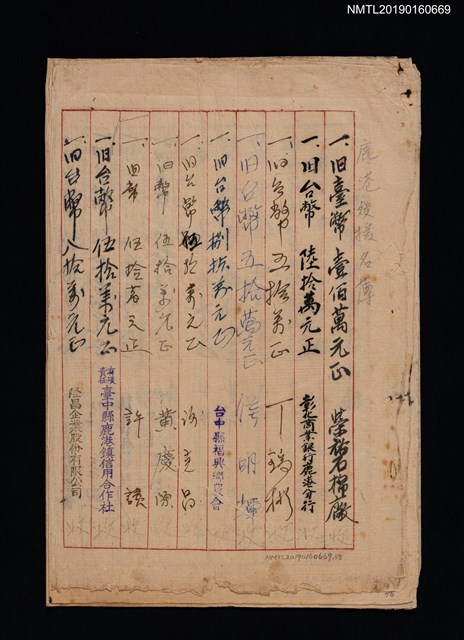 NMTL20190160669
鹿港後援名簿
一、旧臺幣 壹佰萬元正 榮裕石棉廠
一、旧台幣 陸拾萬元正 彰化商業銀行鹿港分行
一、旧台幣 五拾万正 丁
一、旧台幣 五拾萬元正 明
一、旧台幣 捌拾万元正 台中縣福興鄉農會
一、旧台幣 伍拾万元正 克昌
一、旧幣 伍拾萬元正 黃慶源
一、旧幣 伍拾萬元正 許讀
一、旧台幣 伍拾萬元正 有限責任臺中縣鹿港鎮信用合作社
一、旧台幣 八拾萬元正 陸昌企業股份有限公司
NMTL20190160669